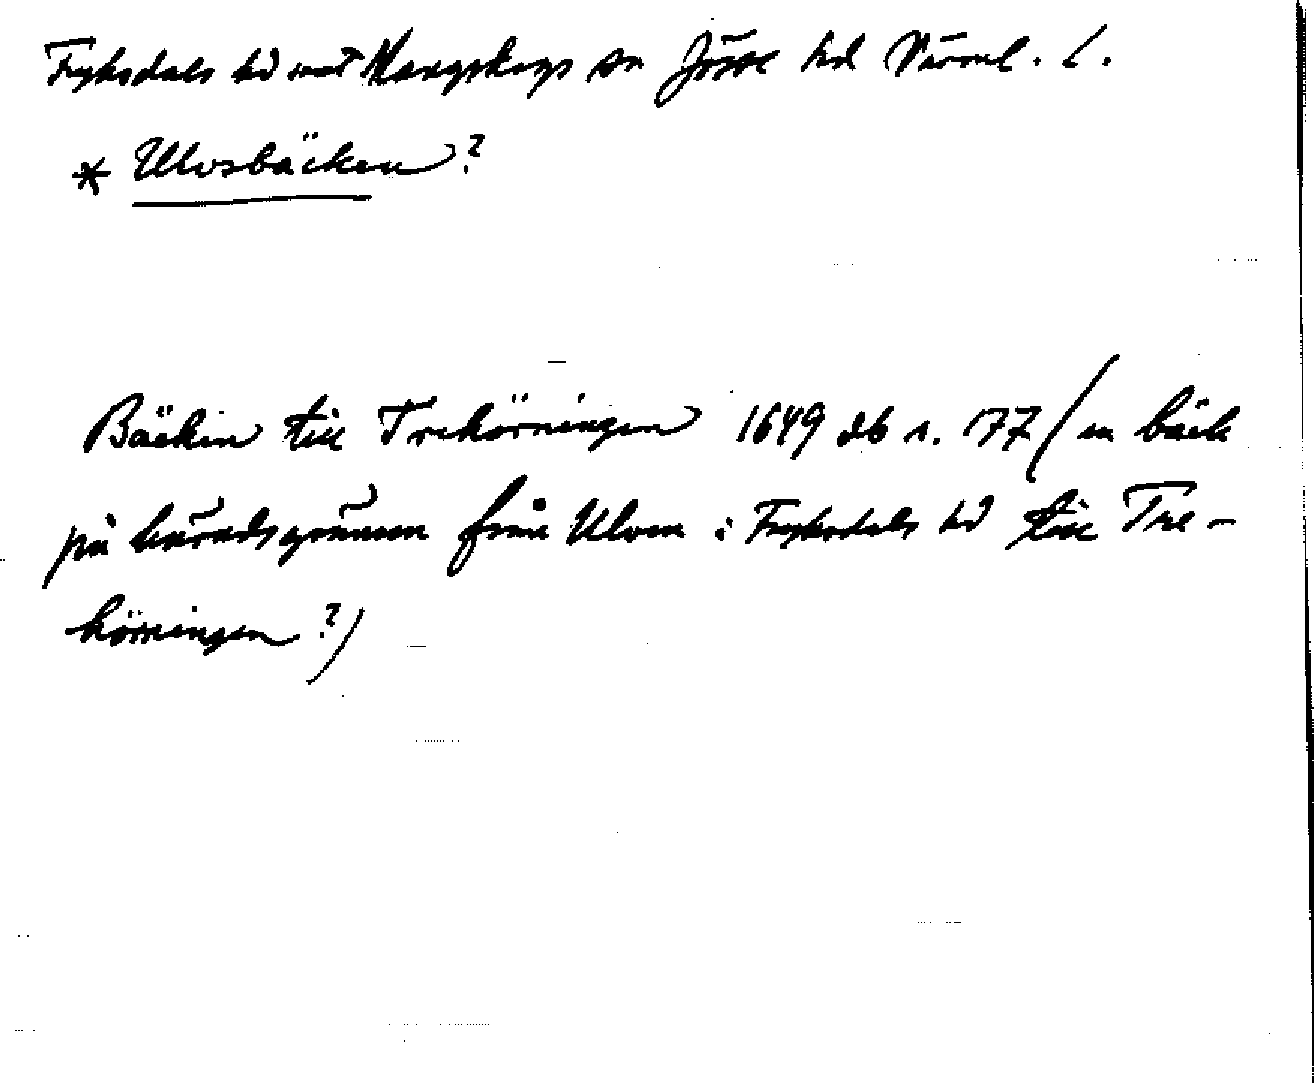 Fryksdals hd mot Mangskogs sn Jösse hd Värml. l.
* Ulvsbäcken?
Bäcken till Trehörningen 1649 db s. 177 (en bäck
på häradsgränsen från Ulven i Fryksdals hd till Tre-
hörningen?)